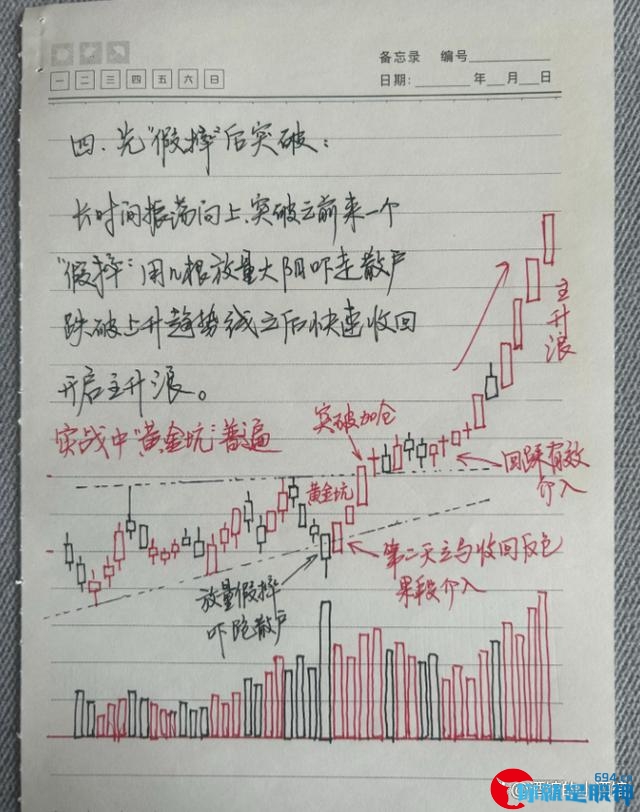 备忘录 编号
一 二 三 四 五 六 日
日期: 年 月 日
四.先“假摔”后突破:
长时间振荡向上.突破之前来一个
“假摔”用几根放量大阴吓走散户
跌破上升趋势线之后快速收回
开启主升浪。
实战中“黄金坑”普遍
主升浪
突破加仓
回踩有效
介入
黄金坑
第二天立马收回反包
果断介入
放量假摔
吓跑散户
694.c